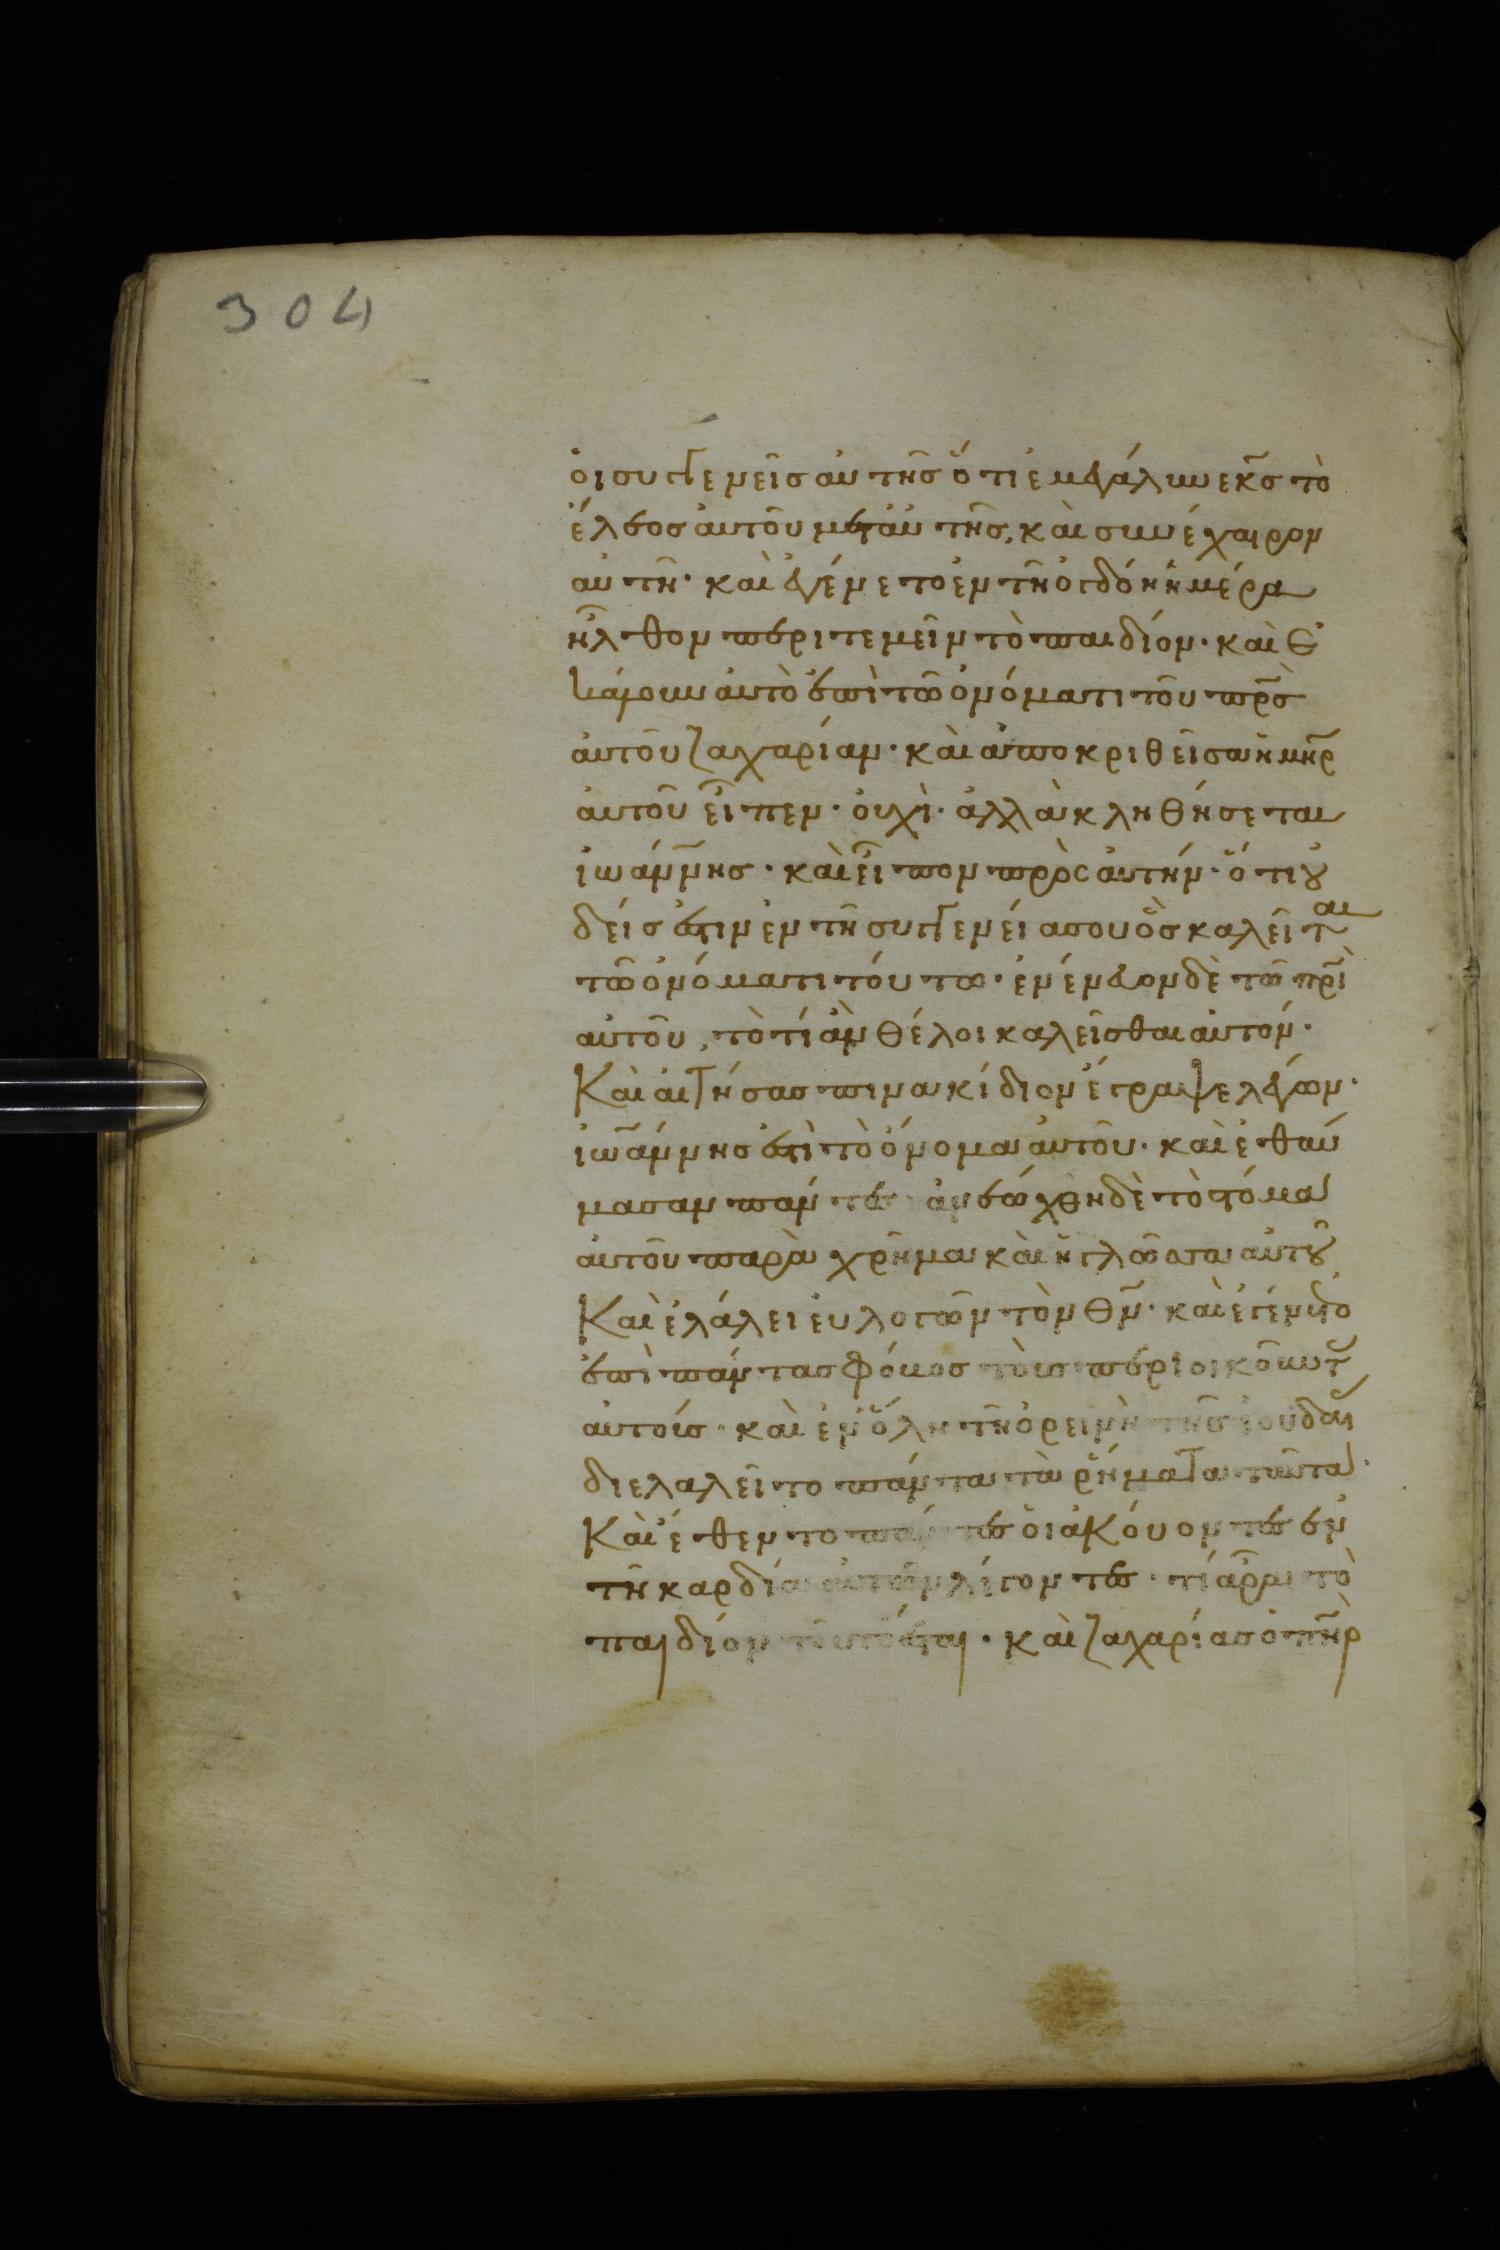 304
οἱ συγγενεῖς αὐτῆς ὅτι ἐμεγάλυνε κ̅ς̅ τὸ
ἔλεος αὐτοῦ μετ' αὐτῆς, καὶ συνέχαιρον
αὐτῆ· καὶ ἐγένετο ἐν τῆ ὀγδόη ἡμέρα
ἦλθον περιτεμεῖν τὸ παιδίον· καὶ ἐ
κάλουν αὐτὸ ἐπὶ τῶ ὀνόματι τοῦ π̅ρ̅ς̅
αὐτοῦ ζαχαρίαν· καὶ ἀποκριθεῖσα ἡ μ̅η̅ρ̅
αὐτοῦ εἶπεν· οὐχὶ· ἀλλὰ κληθήσεται
ἰωάννης· καὶ εἶπον πρὸς αὐτήν· ὅτι οὐ
δείς ἐστιν ἐν τῆ συγγενεία σου ὃς καλεῖται
τῶ ὀνόματι τούτω· ἐνένευον δὲ τῶ π̅ρ̅ι̅
αὐτοῦ, τὸ τί ἂν θέλοι καλεῖσθαι αὐτόν·
Καὶ αἰτήσας πινακίδιον ἔγραψε λέγων·
ἰωάννης ἐστὶ τὸ ὄνομα αὐτοῦ· καὶ ἐθαύ
μασαν πάντες· ἀνεώχθη δὲ τὸ στόμα
αὐτοῦ παρὰ χρῆμα καὶ ἡ γλῶσσα αὐτοῦ
Καὶ ἐλάλει εὐλογῶν τὸν θ̅ν̅· καὶ ἐγένετο
ἐπὶ πάντας φόβος τοὺς περιοικοῦντ
αὐτοίς· καὶ ἐν ὅλη τῆ ὀρεινὴ τῆς ἰουδαί
διελαλεῖτο πάντα τὰ ῥήματα ταῦτα·
Καὶ ἔθεντο πάντες οἱ ἀκούοντες ἐν
τῆ καρδία αὐτῶν λέγοντες· τί ἄρα τὸ
παιδίον τοῦτο ἔσται· καὶ ζαχαρίας ὁ π̅η̅ρ̅